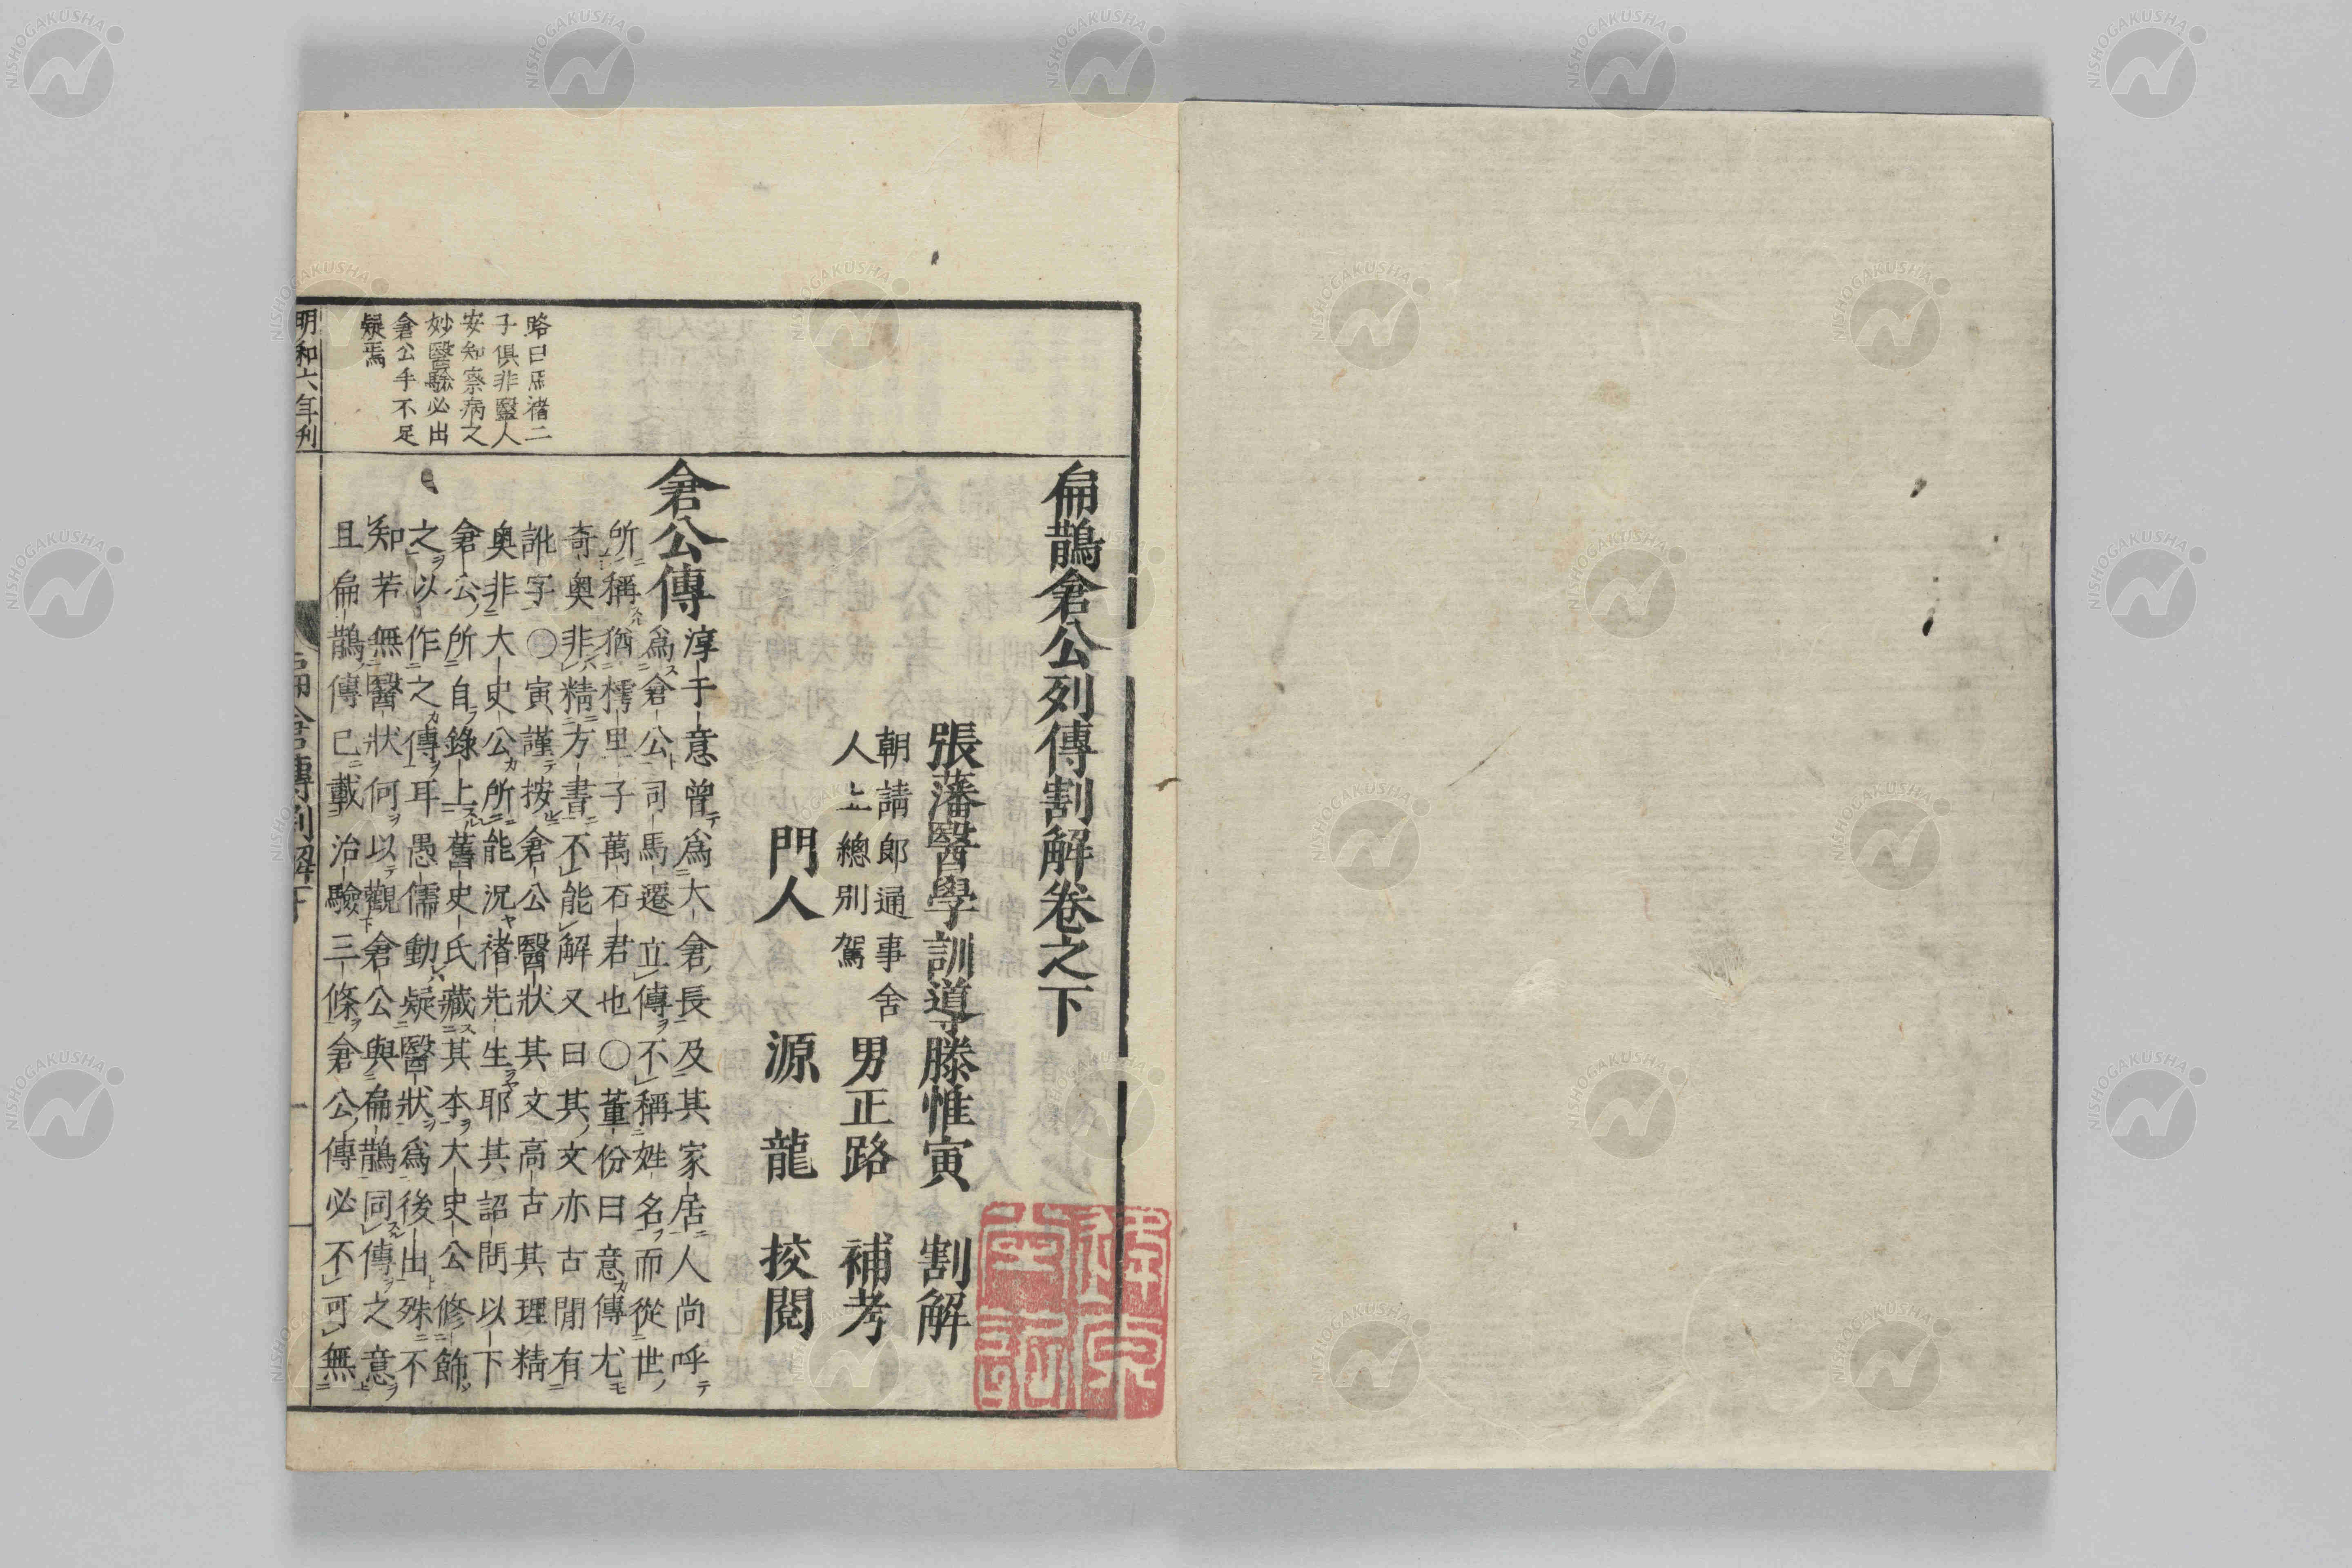 扁鵲倉公列傳割解卷之下
張藩醫學訓導滕惟寅　割解
朝請郎通事舍
人上總別駕
男正路　補考
門人　源　龍　挍閱
倉公傳
淳于意曾爲大倉長及其家居人尚呼
爲倉公司馬遷立傳不稱姓名而從世
所稱猶樗里子萬石君也○董份曰意傳尤
奇奧非精方書不能解又曰其文亦古閒有
訛字○寅謹按倉公醫狀其文高古其理精
奧非大史公所能況褚先生耶其詔問以下
倉公所自錄上舊史氏藏其本大史公修飾
之以作之傳耳愚儒動疑醫狀爲後出殊不
知若無醫狀何以觀倉公與扁鵲同傳之意
且扁鵲傳已載治驗三條倉公傳必不可無
路曰馬褚二
子俱非醫人
安知察病之
妙醫驗必出
倉公手不足
疑焉
明和六年刋
扁倉傳割解下
一
NISHOGAKUSHA